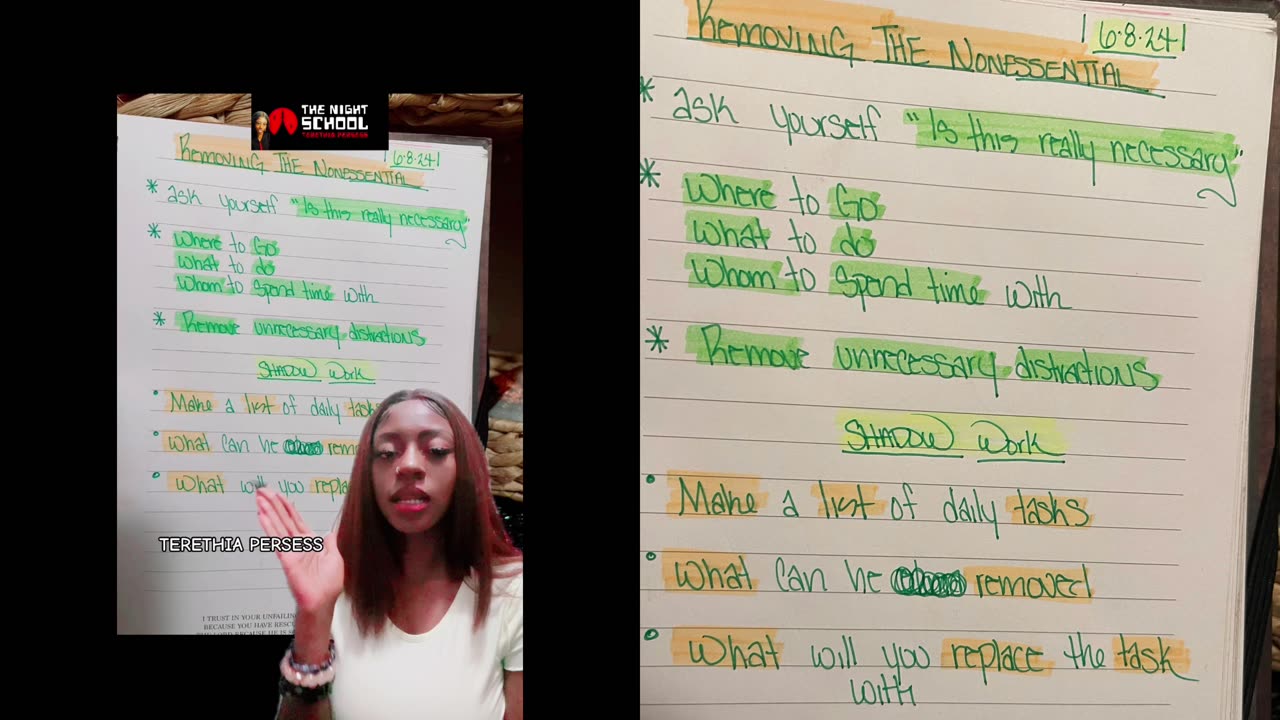 THE NIGHT
SCHOOL
TERETHIA PERSESS
REMOVING THE NONESSENTIAL
6.8.24
* ask yourself "Is this really necessary"
* Where to Go
What to do
Whom to Spend time with
* Remove unnecessary distractions
SHADOW Work
• Make a list of daily task
• What can be remo
• What will you repla
TERETHIA PERSESS
I TRUST IN YOUR UNFAILING
BECAUSE YOU HAVE RESC
REMOVING THE NONESSENTIAL
6.8.24
* ask yourself "Is this really necessary"
* Where to Go
What to do
Whom to Spend time with
* Remove unnecessary distractions
SHADOW Work
• Make a list of daily tasks
• What can be removed
• What will you replace the task
with